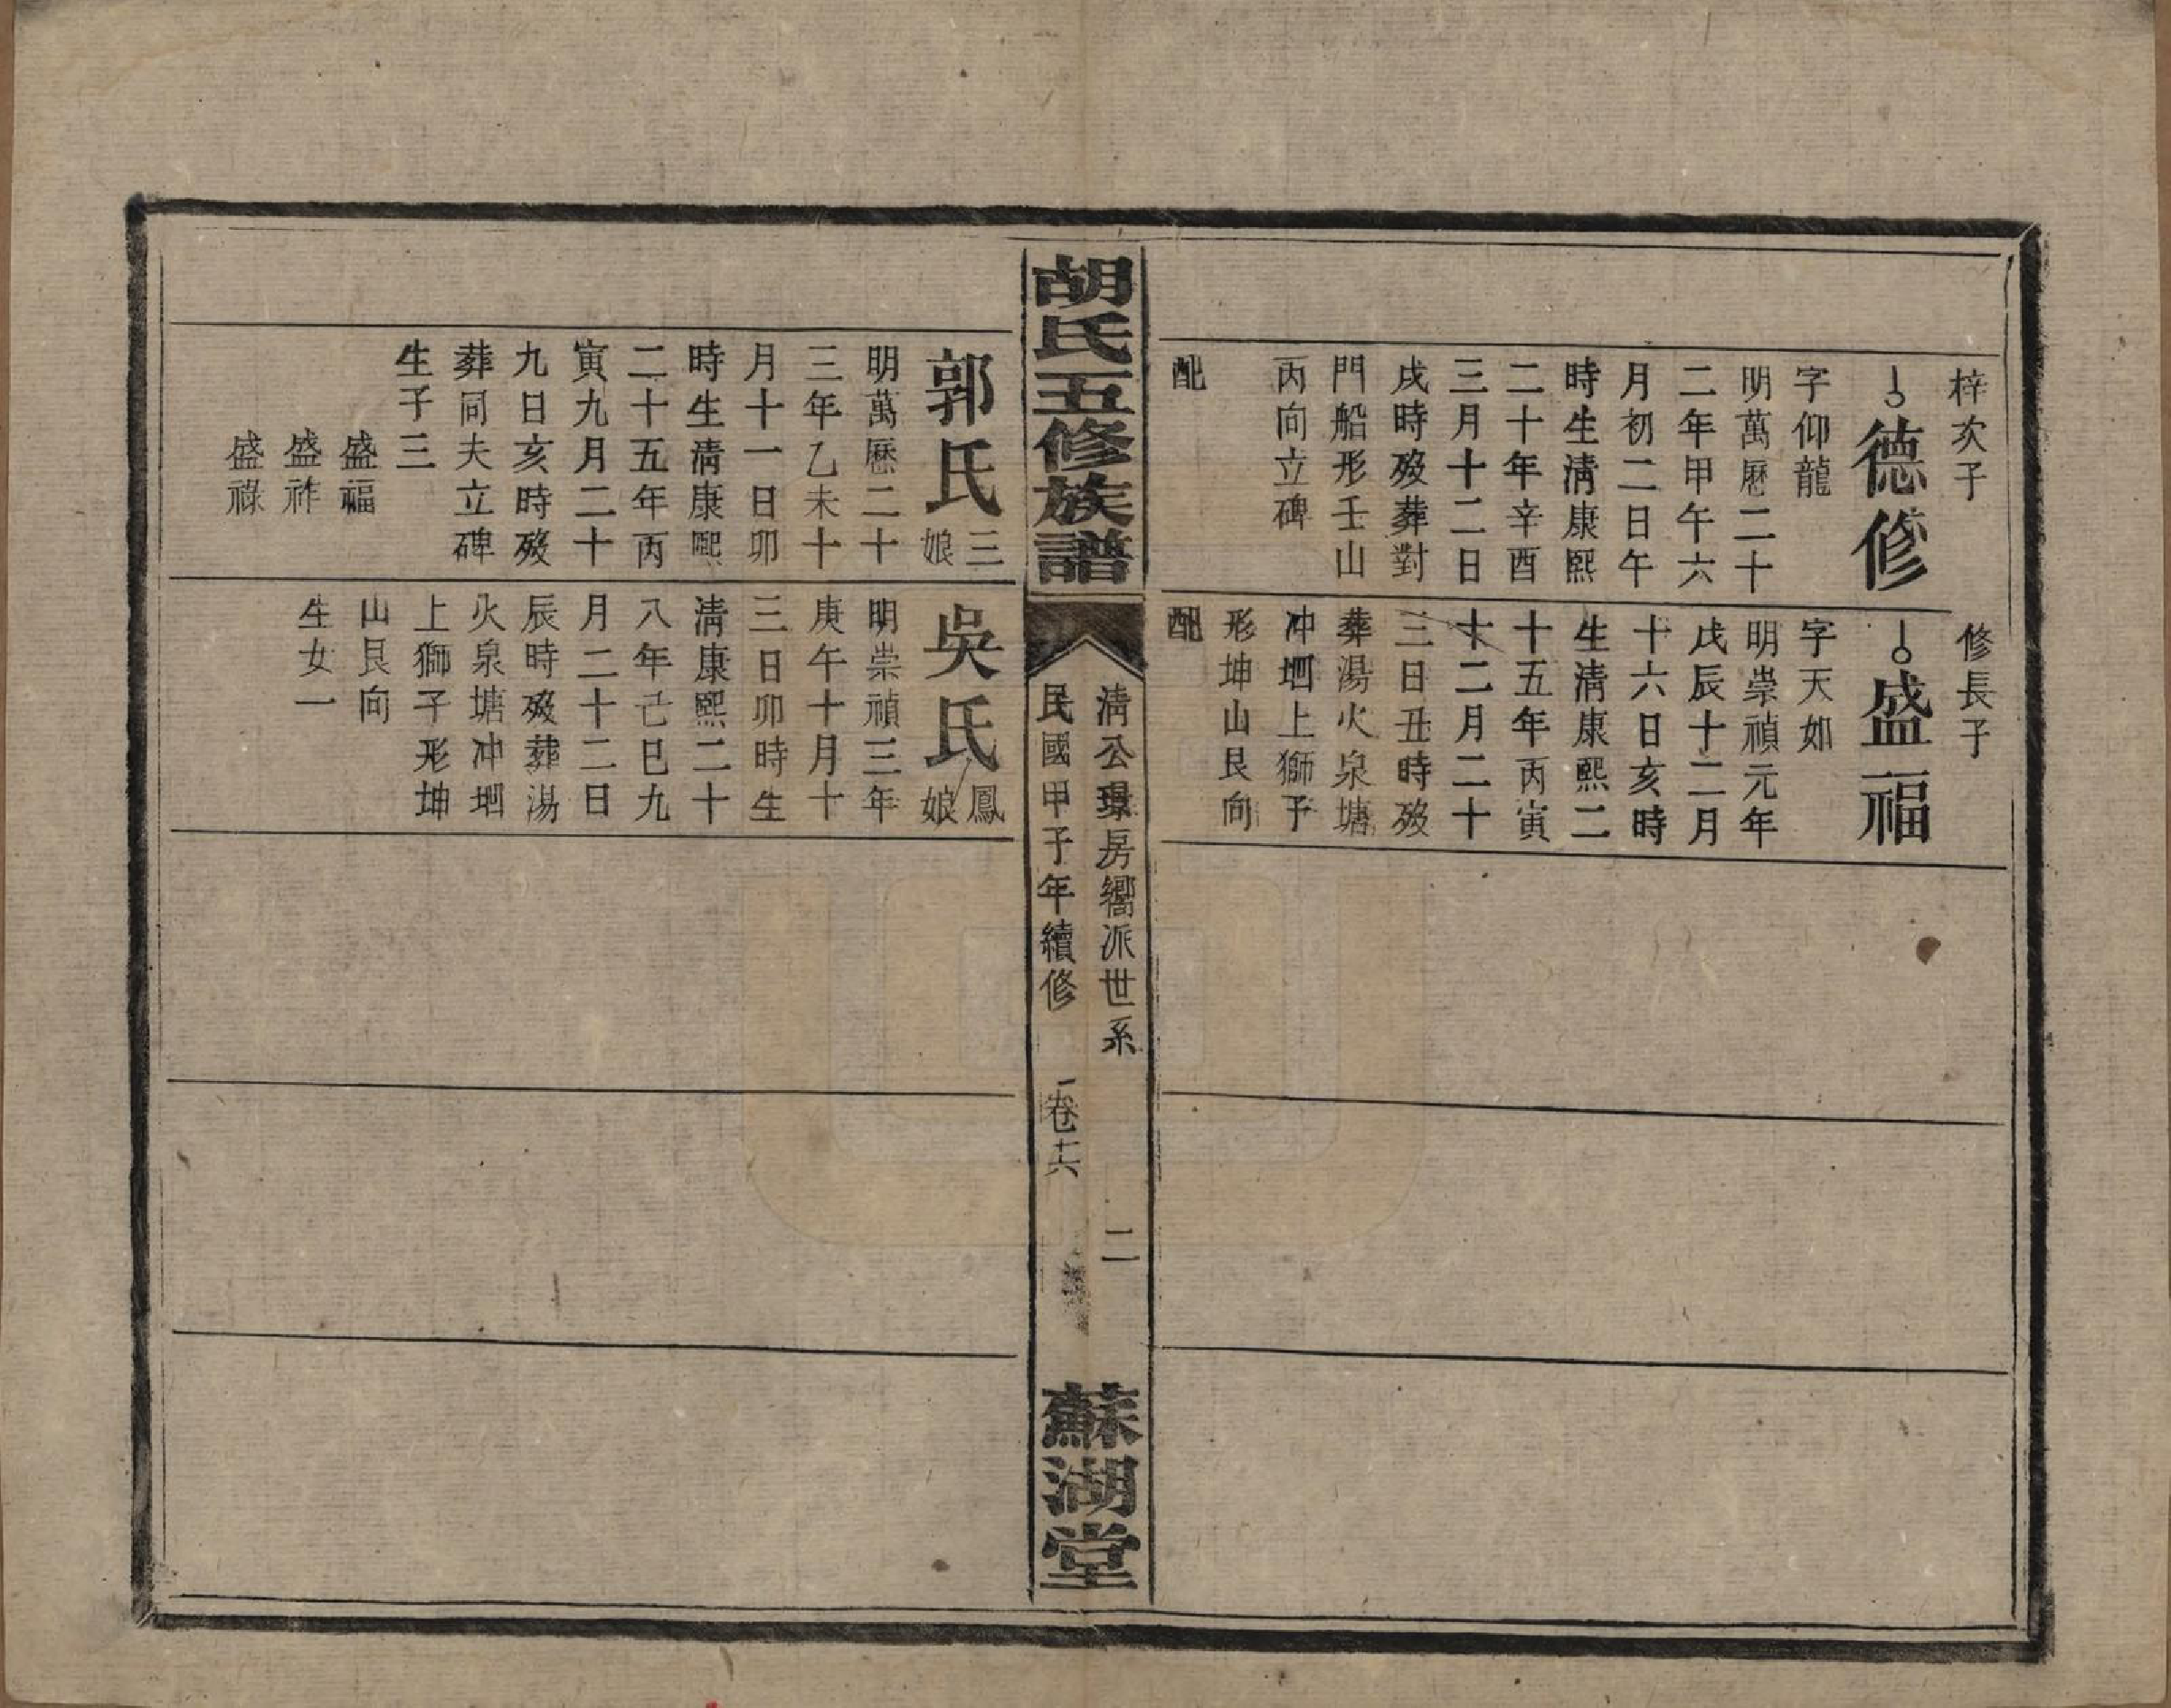 梓次子
德修
字仰龍
明萬曆二十
二年甲午六
月初二日午
時生清康熙
二十年辛酉
三月十二日
戌時歿葬對
門船形壬山
丙向立碑
配
修長子
盛福
字天如
明崇禎元年
戊辰十二月
十六日亥時
生清康熙二
十五年丙寅
十二月二十
三日丑時歿
葬湯火泉塘
冲垇上獅子
形坤山艮向
配
胡氏五修族譜
清公璟房嚮派世系
民國甲子年續修
卷十六
二
蘇湖堂
郭氏三娘
明萬曆二十
三年乙未十
月十一日卯
時生清康熙
二十五年丙
寅九月二十
九日亥時歿
葬同夫立碑
生子三
盛福
盛祚
盛祿
吳氏鳳娘
明崇禎三年
庚午十月十
三日卯時生
清康熙二十
八年己巳九
月二十二日
辰時歿葬湯
火泉塘冲垇
上獅子形坤
山艮向
生女一